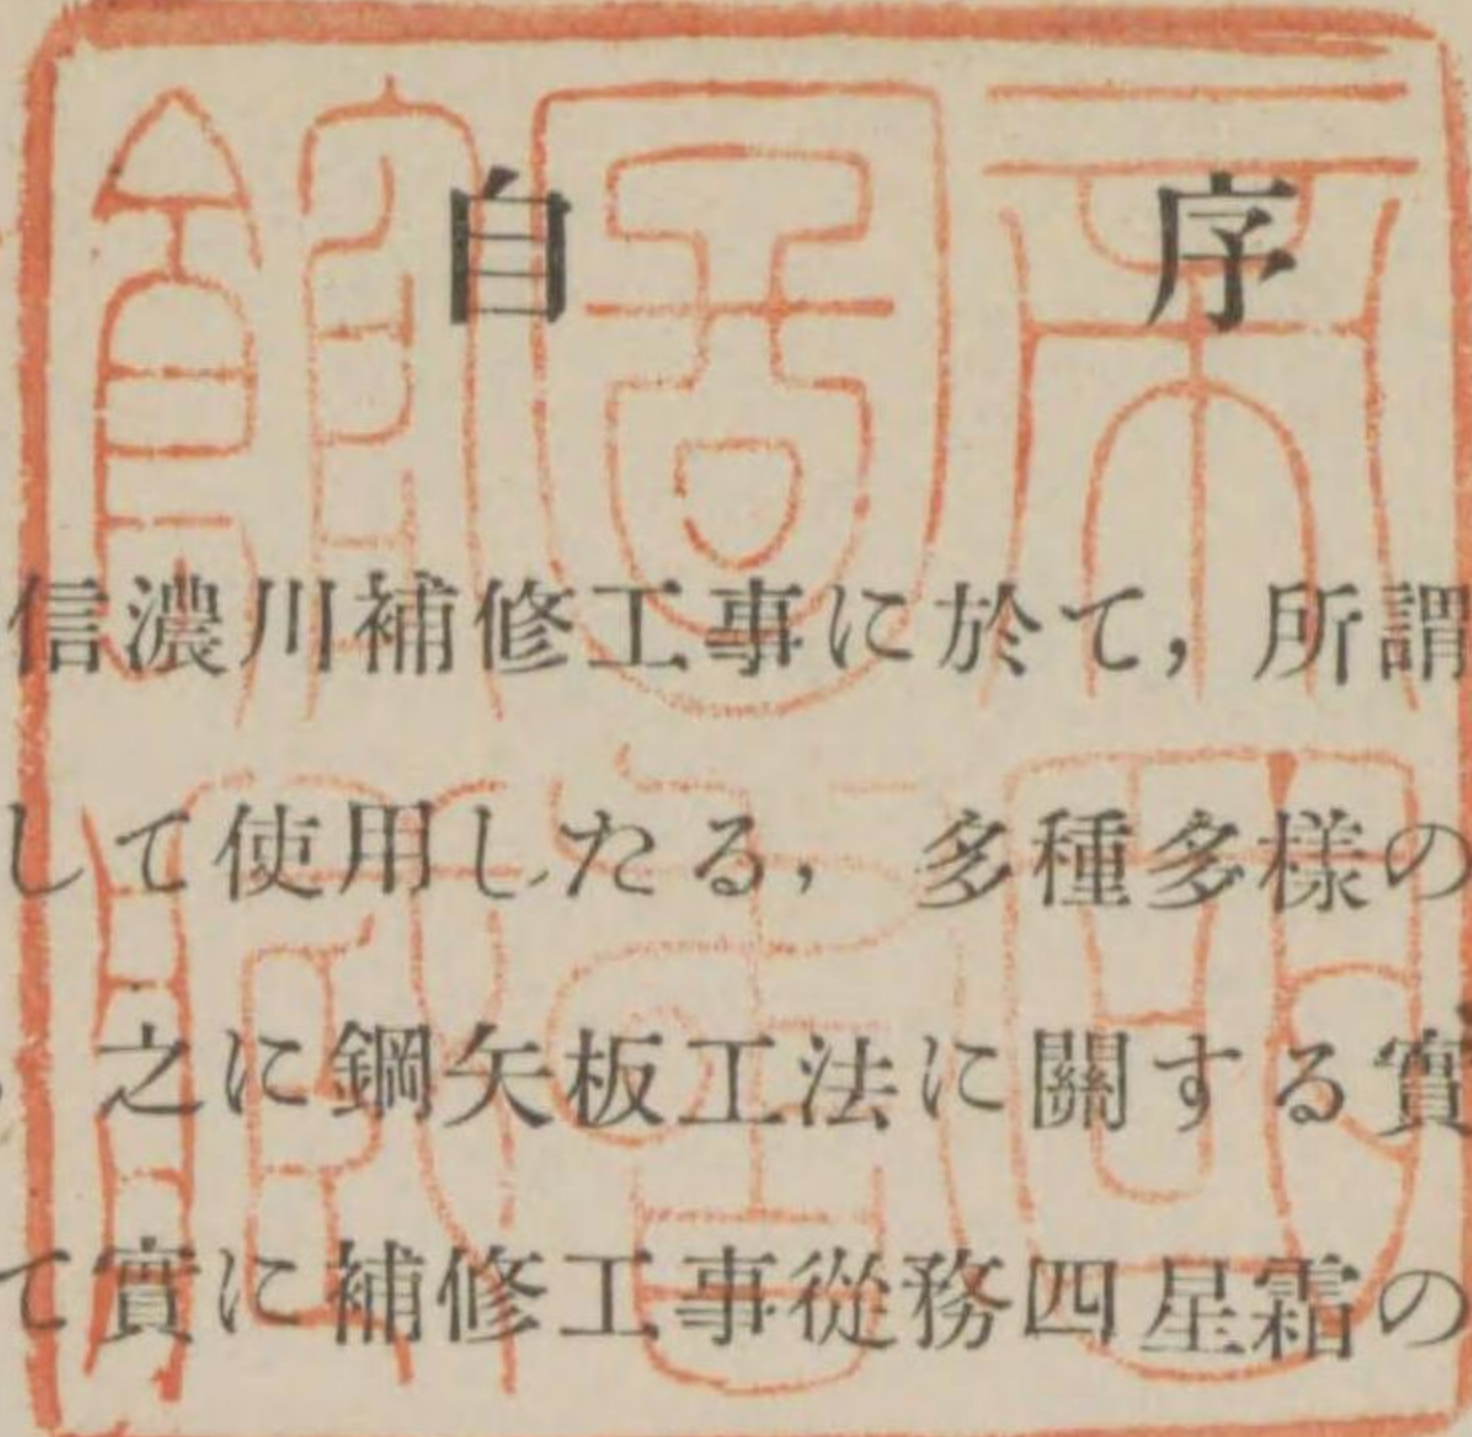 自序
信濃川補修工事に於て，所謂
して使用したる，多種多樣の
之に鋼矢板工法に關する實
て實に補修工事從務四星霜の
帝國圖書館藏